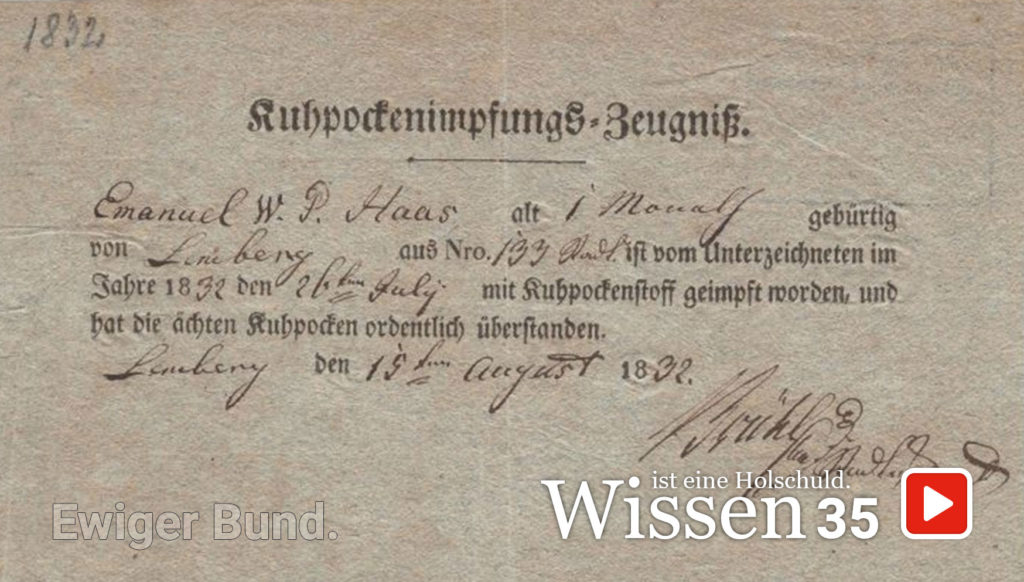 1832
Kuhpockenimpfungs-Zeugniß.
Emanuel W. P. Haas alt 1 Monath gebürtig
von Lemberg aus Nro. 133 Stadt ist vom Unterzeichneten im
Jahre 1832 den 26ten July mit Kuhpockenstoff geimpft worden, und
hat die ächten Kuhpocken ordentlich überstanden.
Lemberg den 15ten August 1832.
ist eine Holschuld.
Wissen 35
Ewiger Bund.